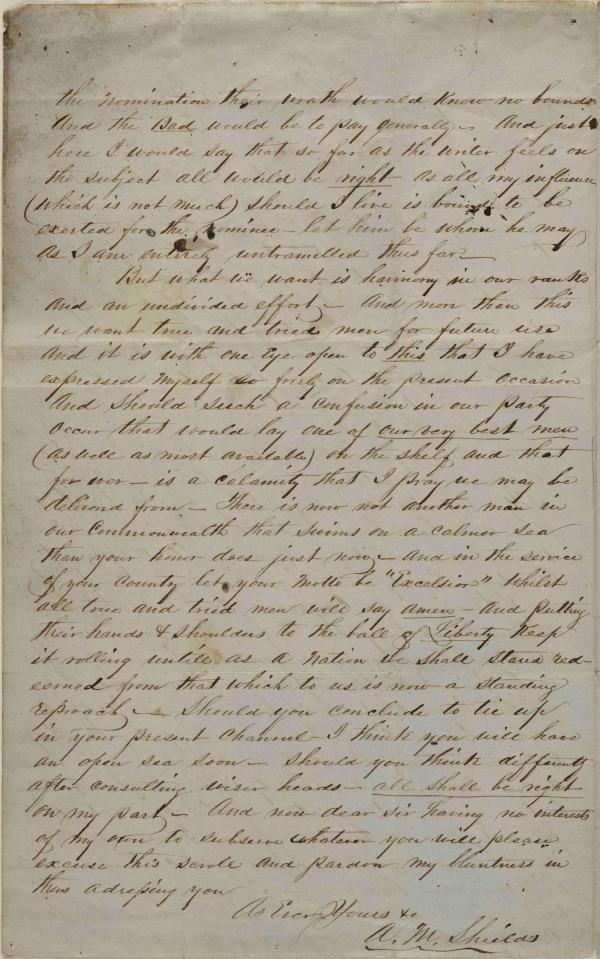 the nomination their wrath would know no bounds
And the Bad would be to pay generally – And just
here I would say that so far as the writer feels on
the subject all would be right as all my influence
(which is not much) should I live is bound to be
exerted for the nominee – let him be whom he may
as I am entirely untramelled thus far –
But what we want is harmony in our ranks
and an undivided effort – And more than this
we want true and tried men for future use
And it is with one Eye open to this that I have
expressed myself so freely on the present occasion
And should such a confusion in our party
occur that would lay one of our very best men
(as well as most available) on the shelf and that
for ever – is a calamity that I pray we may be
delivered from – There is now not another man in
our Commonwealth that swims on a calmer sea
than your honor does just now – and in the service
of your County let your motto be "Excelsior" whilst
all true and tried men will say amen – and putting
their hands & shoulders to the ball of Liberty keep
it rolling untill as a nation we shall stand red-
eemed from that which to us is now a standing
reproach – Should you conclude to tie up
in your present channel – I think you will have
an open sea soon – should you think differently
after consulting wiser heads – all shall be right
on my part – And now dear sir having no interests
of my own to subserve whatever you will please
excuse this scrole and pardon my bluntness in
thus adressing you
As Ever Yours &c
A. M. Shields